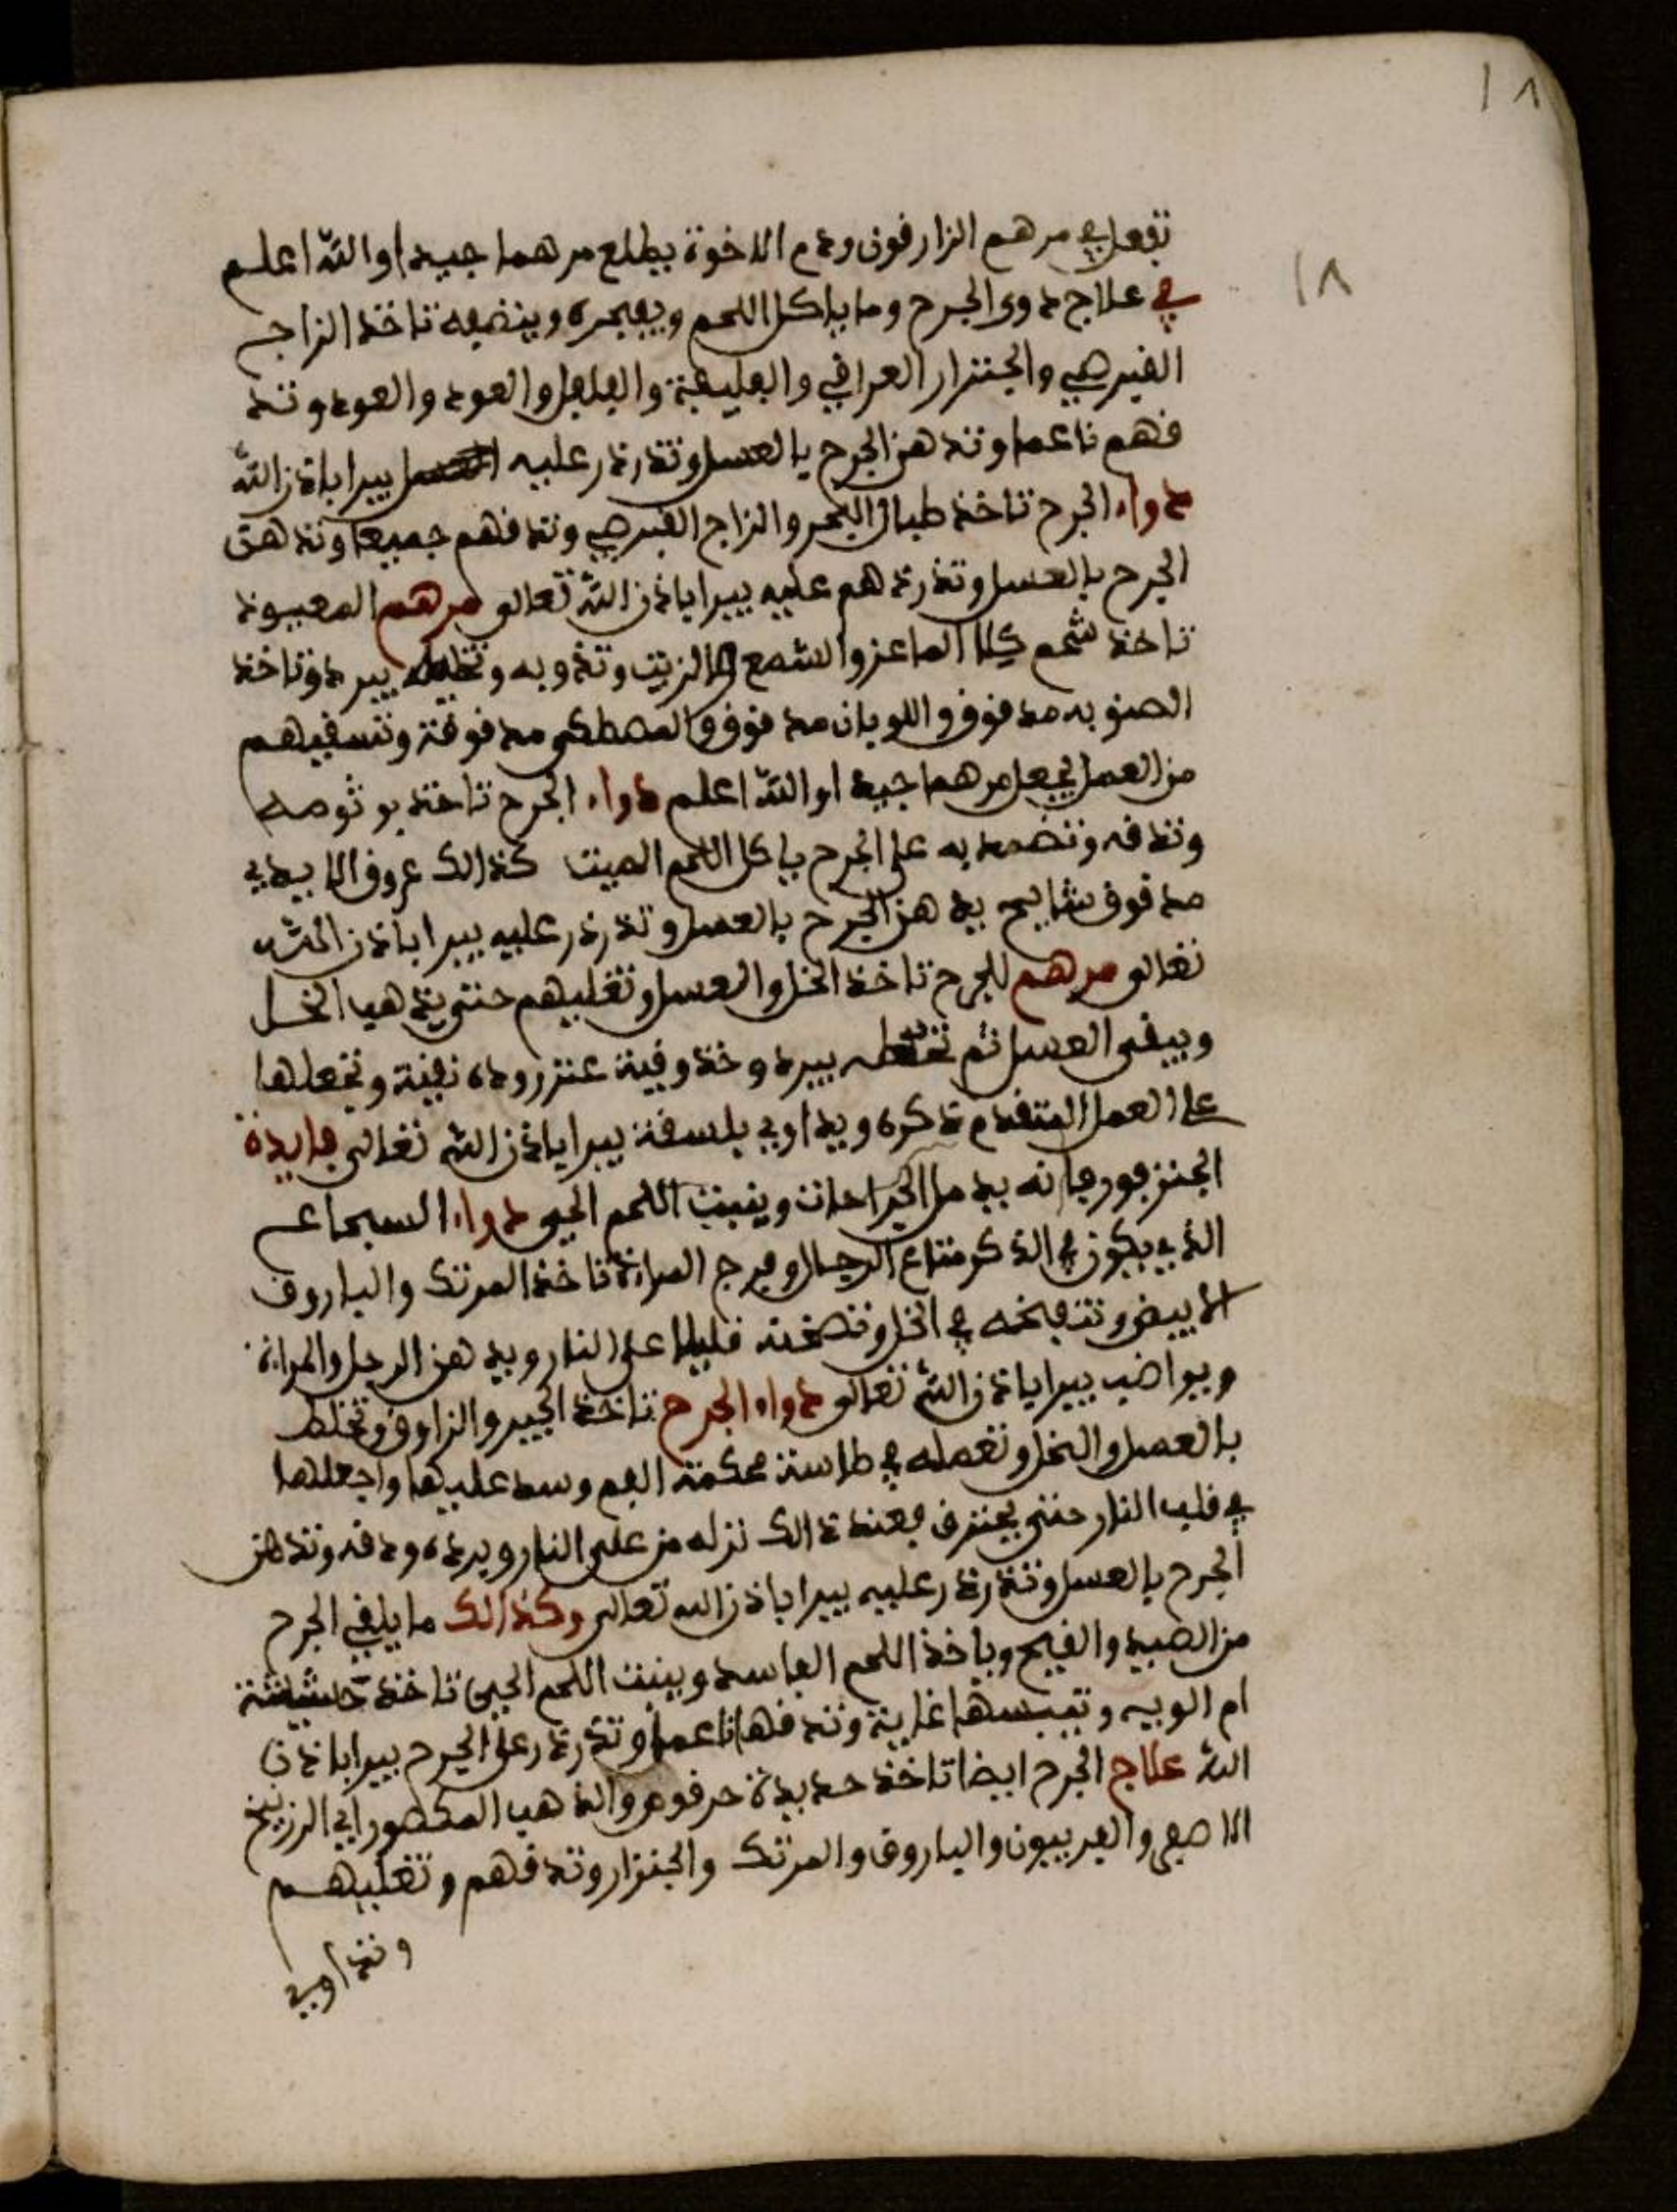 ١٨
١٨
تفعل في مرهم الزارقون ودم الاخوة يطلع مرهما جيدا والله اعلم
في علاج دوى الجرح وما ياكل اللحم ويفجره وينضفه تاخذ الزاج
القبرصي والجنزار العراقي والفليفلة والعود والعود وتد
قهم ناعما وتدهن الجرح بالعسل وتذرذر عليه يبرا باذن الله
دواء الجرح تاخذ البحر والزاج القبرصي وتدقهم جميعا وتدهن
الجرح بالعسل وتذرذهم عليه يبرا باذن الله تعالى مرهم المعيون
تاخذ شحم كلا الماعز والشمع والزيت وتذوبه يبرد وتاخذ
الصنوبر مدقوق واللوبان مدقوق والمصطكى مدقوقة وتسقيهم
من العمل يجعل مرهما جيدا والله اعلم دواء الجرح تاخذ
وتدقه وتضمد به على الجرح ياكل اللحم الميت كذالك عروق
مدقوق يدهن الجرح بالعسل وتذرذر عليه يبرا باذن الله
تعالى مرهم للجرح تاخذ الخل والعسل وتغليهم حتى يذهب الخل
ويبقى العسل ثم تحطه يبرد وخذ وقية عنزروده نقية وتجعلها
على العمل المتقدم ذكره ويداوي يبرا باذن الله تعالى فايدة
الجنزفور فانه يدمل الجراحات وينبت اللحم الحي دواء
الذي يكون في الذكر متاع الرجال وفرج المراة تاخذ المرتك والباروق
الابيض وتنفخه في الخل وتصخنه قليلا على النار ويدهن الرجل والمراة
ويواضب يبرا باذن الله تعالى دواء الجرح تاخذ الجير والزاوق وتخلط
بالعسل والخل وتعمله في طاسة محكمة الفم وسد عليها واجعلها
في قلب النار حتى يحترق فعند ذالك نزله من على النار ويرده ودقه وتدهن
الجرح بالعسل وتذرذر عليه يبرا باذن الله تعالى وكذالك ما يلقي الجرح
من الصيد والقيح وياخذ اللحم الفاسد وينبت اللحم الحي تاخذ حشيشة
ام الوبيه وتيبسها غاية وتدقها ناعما وتذرذر على الجرح يبرا باذن
الله علاج الجرح ايضا تاخذ حديدة حرقوص والذهب المكصور اي الزرنيخ
الاصفر والفربيون والباروق والمرتك والجنزار وتدقهم وتغليهم
وتداوي